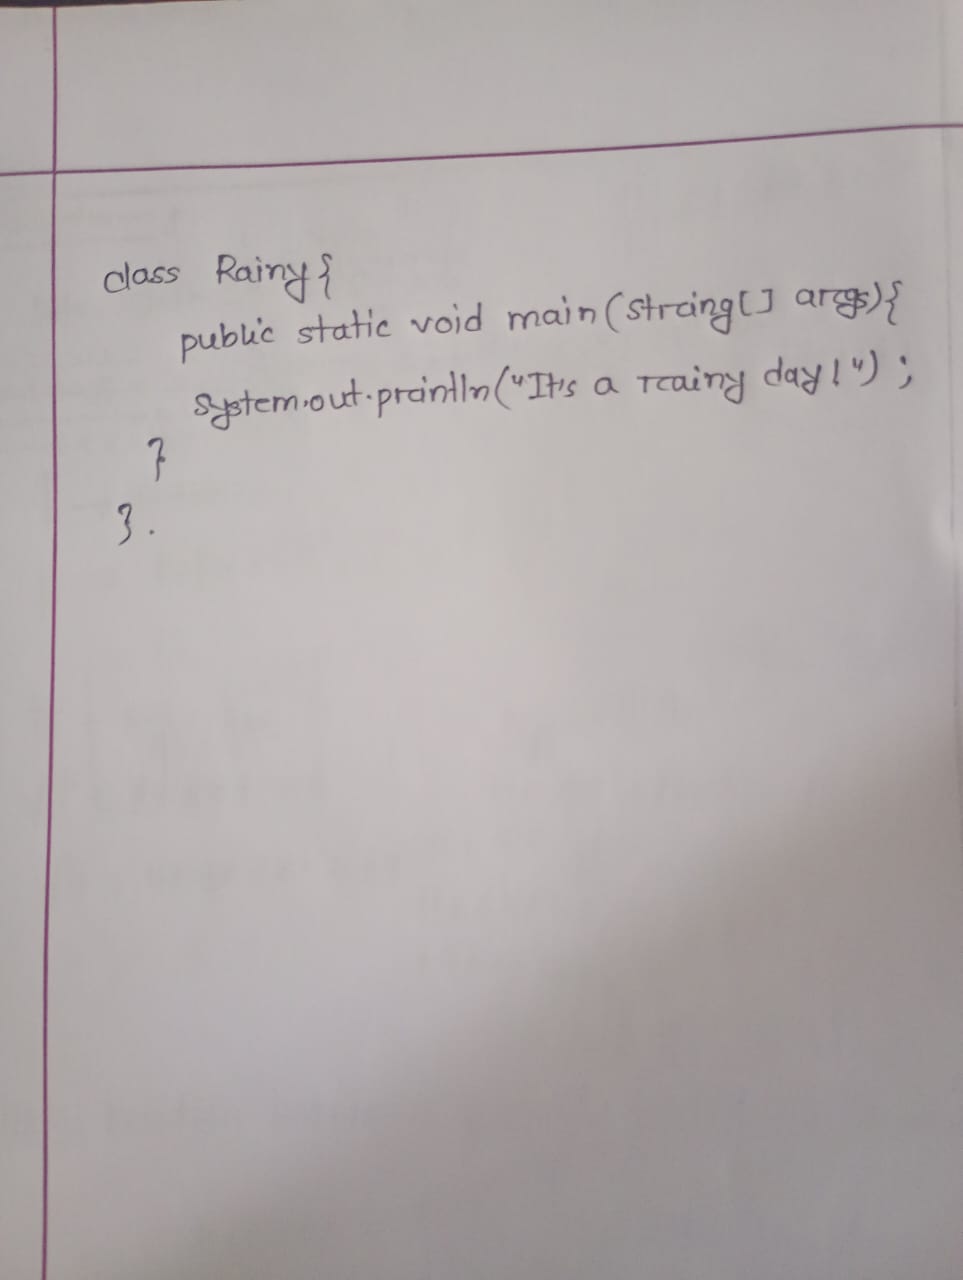 class Rainy{
public static void main(string[] args){
system.out.println("It's a rainy day!");
}
}.